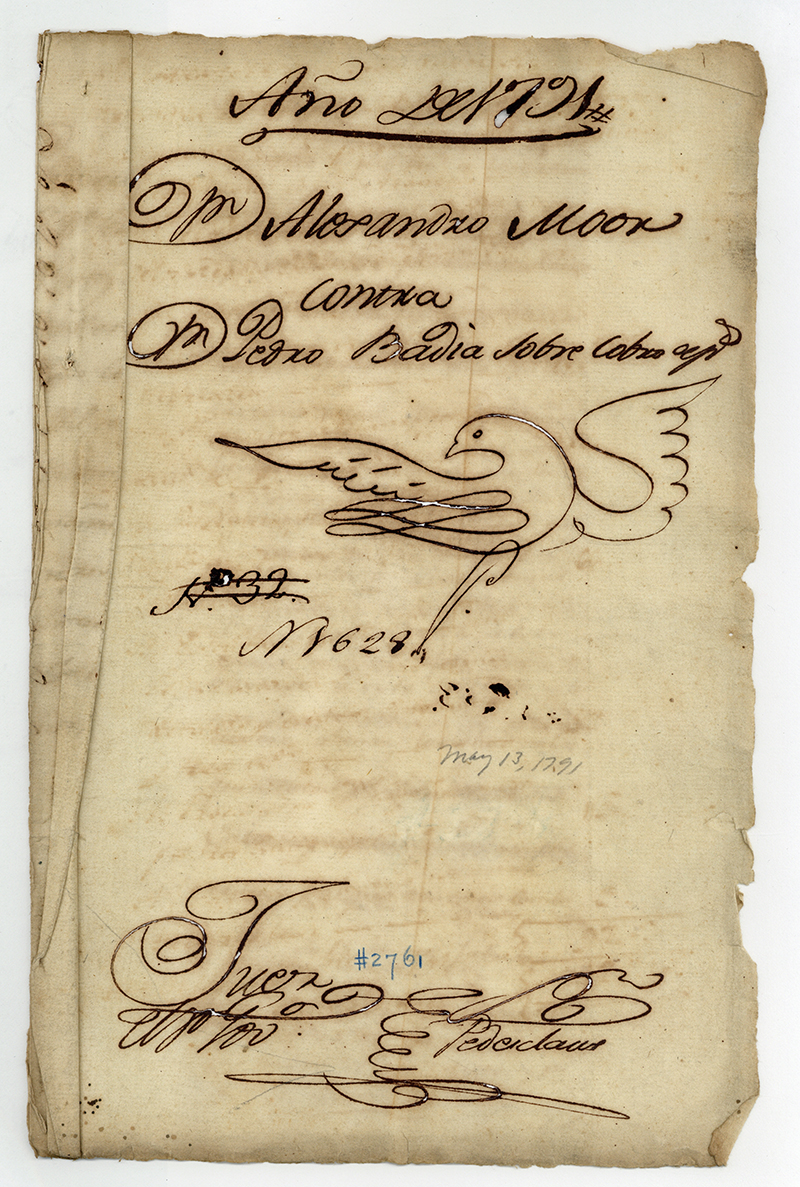 Año De 1791
Dn Alexandro Moor
Contra
Dn Pedro Badia sobre Cobro de ps
No. 32.
No 1628
May 13, 1791
#2761
Juez Esno
el Sor Gor Pedesclaux